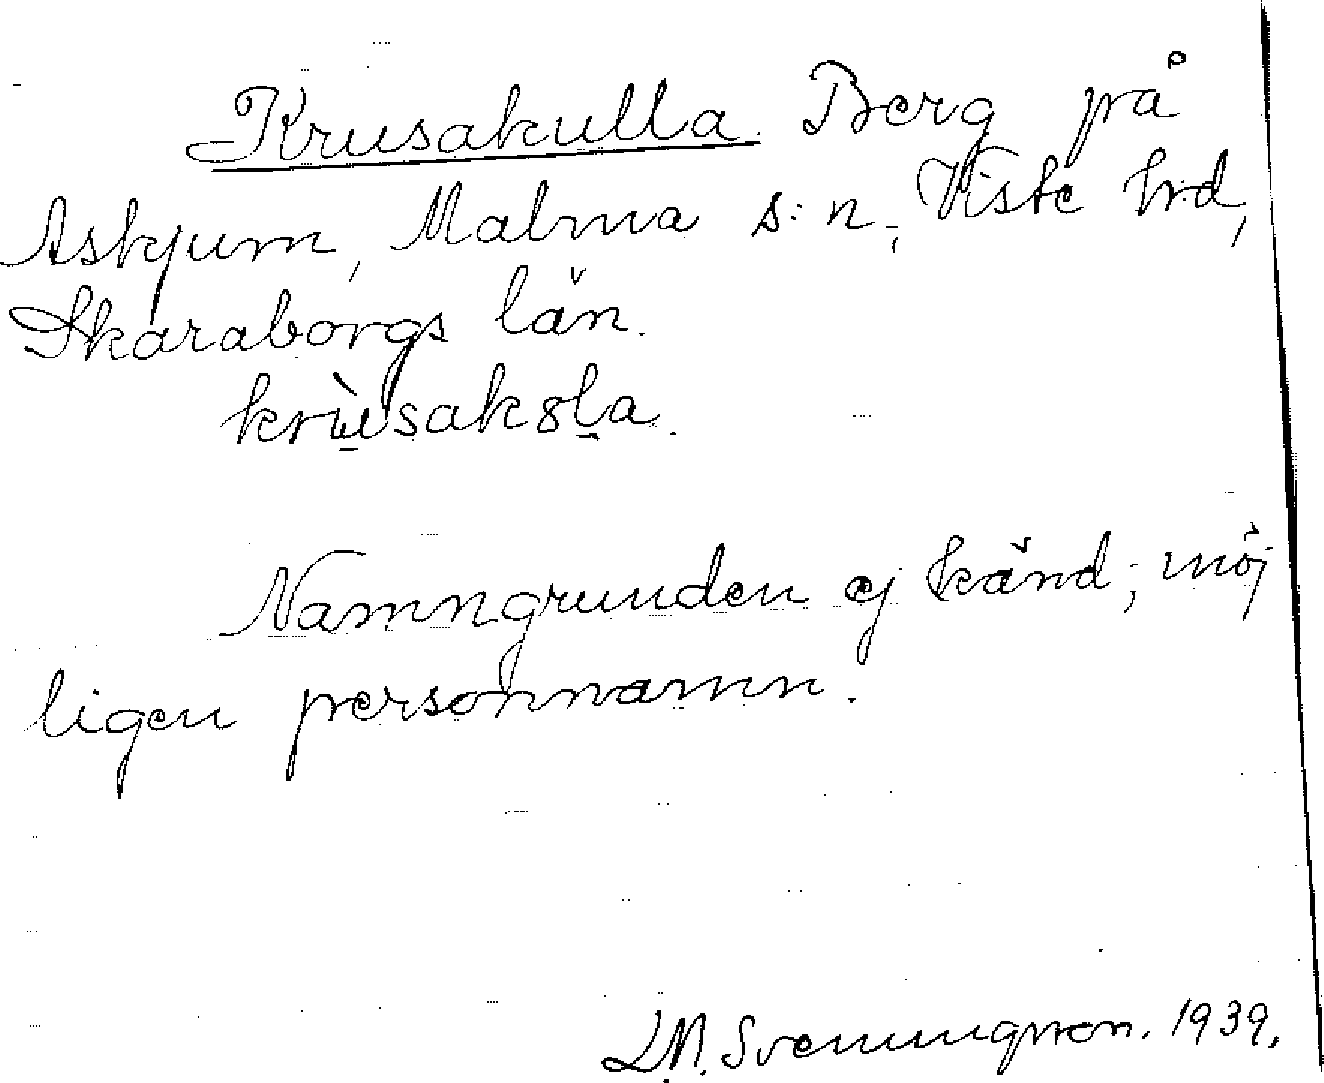 Krusakulla. Berg på
Askjum, Malma s:n, Viste hrd,
Skaraborgs län.
krùsak8l̠a.
Namngrunden ej känd; möj
ligen personnamn.
L.M. Svenungsson. 1939.